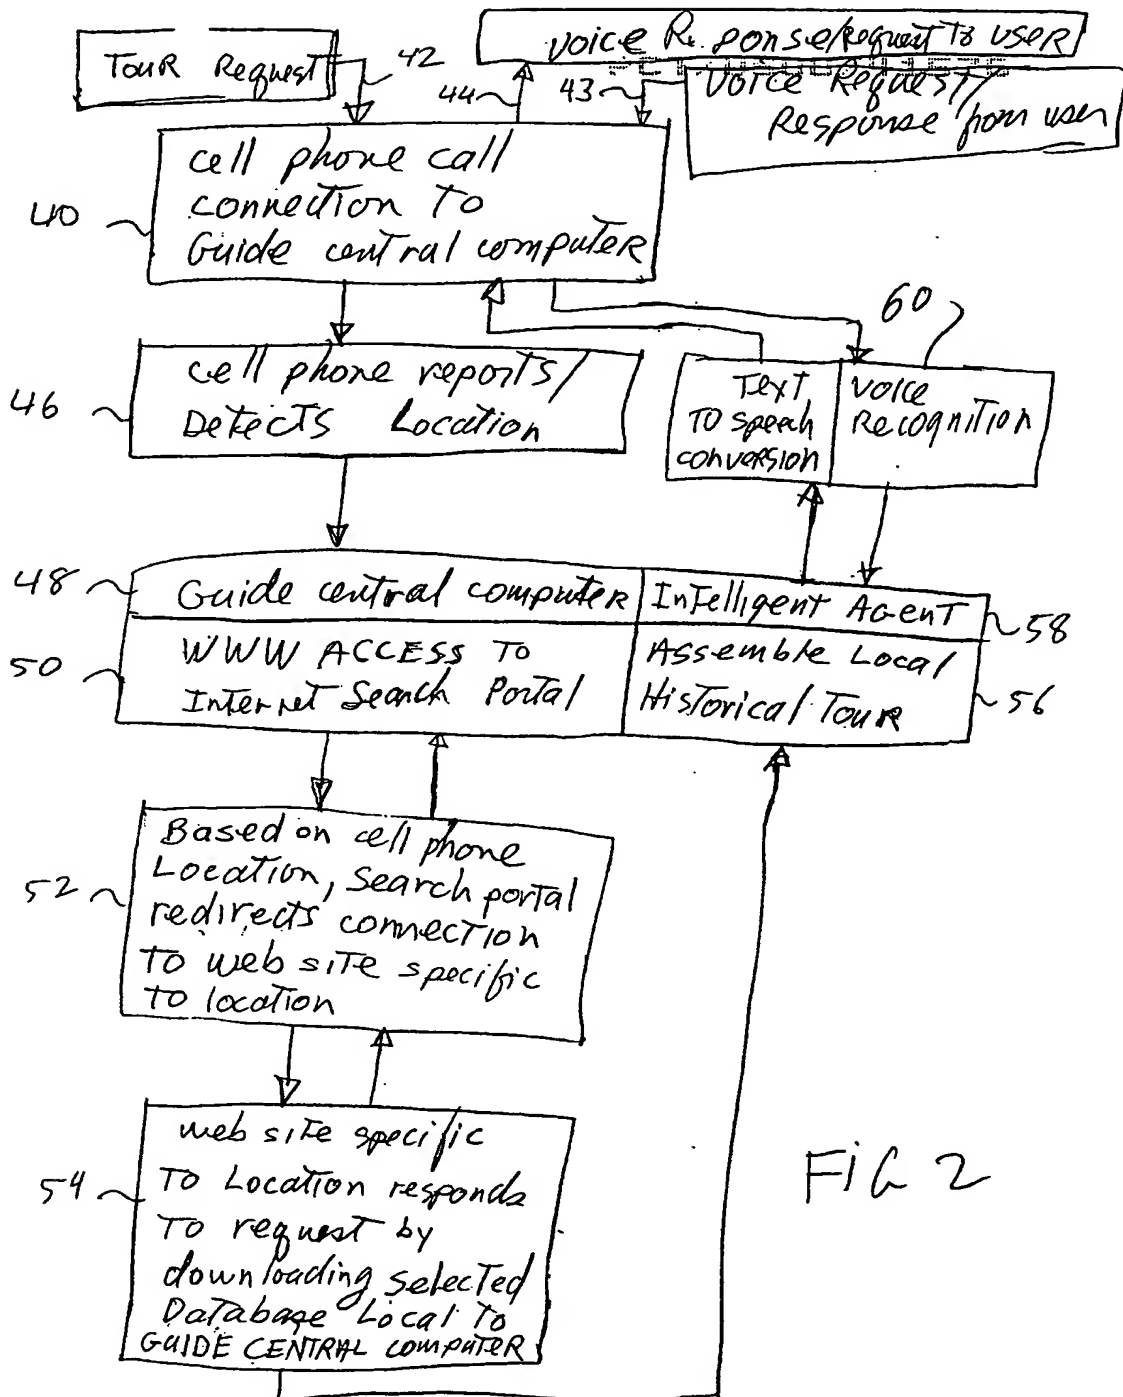 Tour Request
42
Voice Response/Request to user
44
43
Voice Request/
Response from user
40
cell phone call
connection to
Guide central computer
60
46
cell phone reports/
Detects Location
Text
to speech
conversion
Voice
Recognition
48
Guide central computer
Intelligent Agent
58
50
WWW ACCESS To
Internet Search Portal
Assemble Local
Historical Tour
56
52
Based on cell phone
Location, Search portal
redirects connection
to web site specific
to location
54
web site specific
To Location responds
To request by
downloading selected
Database Local to
GUIDE CENTRAL computer
FIG 2